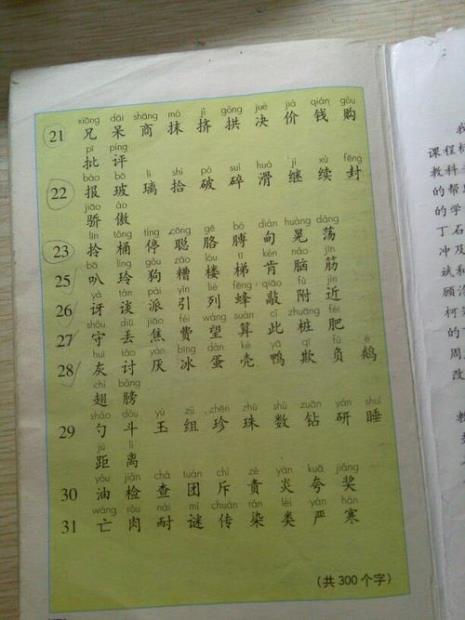 xiōng dāi shāng mǒ jǐ gǒng jué jià qián gòu
21 兄 呆 商 抹 挤 拱 决 价 钱 购
pī píng
批 评
bào bō li shí pò suì huá jì xù fēng
22 报 玻 璃 拾 破 碎 滑 继 续 封
jiāo ào
骄 傲
līn tǒng tíng cōng gē bó diàn huàng dàng
23 拎 桶 停 聪 胳 膊 甸 晃 荡
bā líng gǒu zāo lóu tī kěn nǎo jīn
25 叭 玲 狗 糟 楼 梯 肯 脑 筋
yà tán pài yǐn liè fēng qiāo fù jìn
26 讶 谈 派 引 列 蜂 敲 附 近
shǒu diū jiāo fèi wàng suàn cǐ zhuāng féi
27 守 丢 焦 费 望 算 此 桩 肥
huī tǎo yàn bīng dàn ké yā qī fù é
28 灰 讨 厌 冰 蛋 壳 鸭 欺 负 鹅
chì bǎng
翅 膀
sháo dǒu yù zǔ zhēn zhū shǔ zuān yán shuì
29 勺 斗 玉 组 珍 珠 数 钻 研 睡
jù lí
距 离
yóu jiǎn chá tuán chì zé yán kuā jiǎng
30 油 检 查 团 斥 责 炎 夸 奖
wáng ròu nài mí chuán rǎn lèi yán hán
31 亡 肉 耐 谜 传 染 类 严 寒
(共 300 个字)
课程标
教科
的帮
的学
丁石
冲及
试和
顾
柯
的
周
改